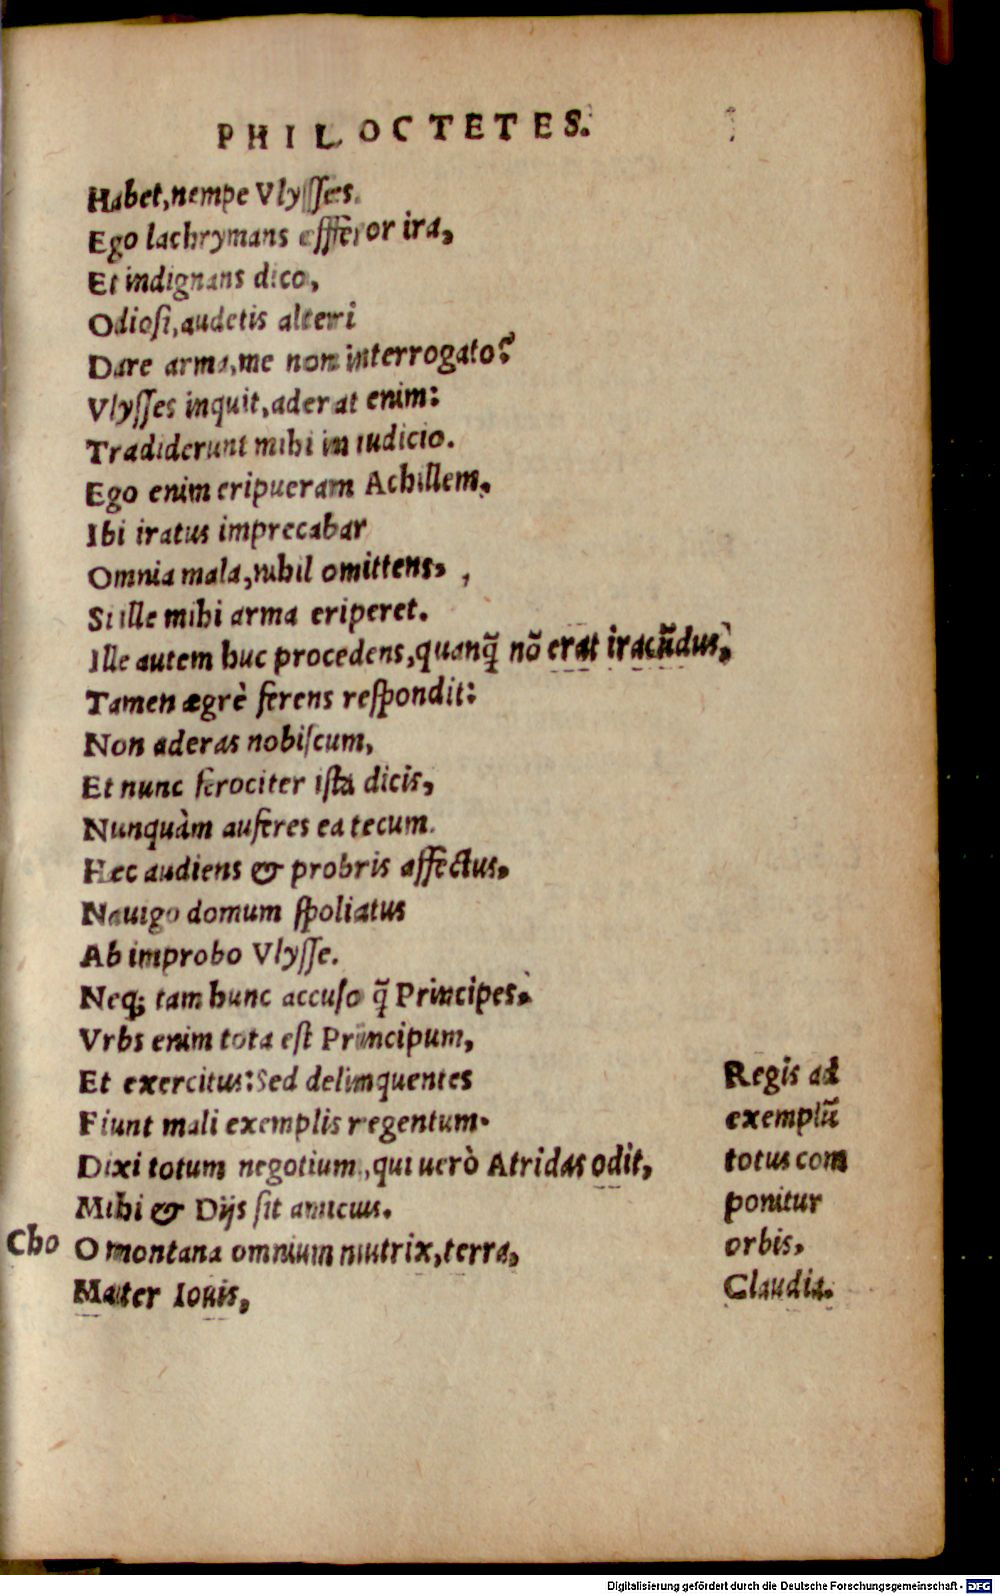 PHILOCTETES.
Habet, nempe Vlysses.
Ego lachrymans efferor ira,
Et indignans dico,
Odiosi, audetis alteri
Dare arma, me non interrogato?
Vlysses inquit, aderat enim:
Tradiderunt mihi in iudicio.
Ego enim eripueram Achillem,
Ibi iratus imprecabar
Omnia mala, nihil omittens,
Si ille mihi arma eriperet.
Ille autem huc procedens, quanq̃ nõ erat iracũdus,
Tamen ægrè ferens respondit:
Non aderas nobiscum,
Et nunc ferociter ista dicis,
Nunquàm auferes ea tecum.
Hæc audiens & probris affectus,
Nauigo domum spoliatus
Ab improbo Vlysse.
Neq; tam hunc accuso q̃ Principes,
Vrbs enim tota est Principum,
Et exercitus: Sed delinquentes
Fiunt mali exemplis regentum.
Dixi totum negotium, qui uerò Atridas odit,
Mihi & Dijs sit amicus.
Cho O montana omnium nutrix, terra,
Mater Iouis,
Regis ad
exemplũ
totus com
ponitur
orbis,
Claudia.
Digitalisierung gefördert durch die Deutsche Forschungsgemeinschaft - DFG